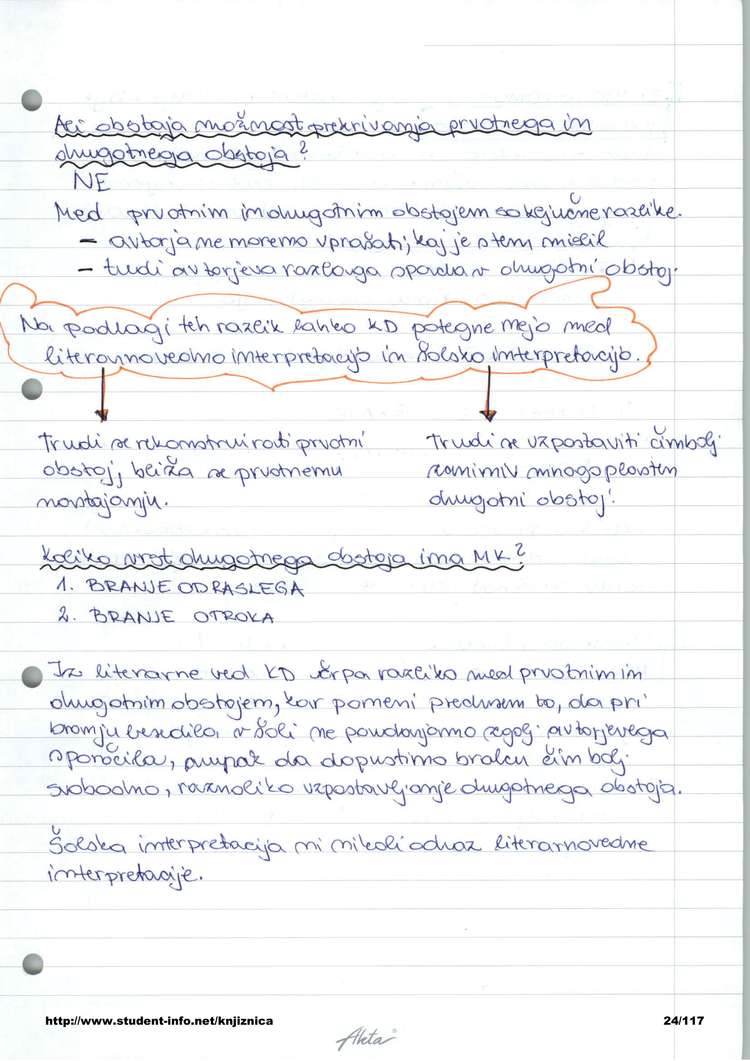 Ali obstaja možnost prekrivanja prvotnega in
drugotnega obstoja?
NE
Med prvotnim in drugotnim obstojem so ključne razlike.
– avtorja ne moremo vprašati, kaj je s tem mislil
– tudi avtorjeva razlaga spada v drugotni obstoj.
Na podlagi teh razlik lahko KD potegne mejo med
literarnovedno interpretacijo in šolsko interpretacijo.
Trudi se rekonstruirati prvotni
obstoj, bliža se prvotnemu
nastajanju.
Trudi se vzpostaviti čimbolj
zanimiv mnogoplasten
drugotni obstoj.
Koliko vrst drugotnega obstoja ima MK?
1. BRANJE ODRASLEGA
2. BRANJE OTROKA
Iz literarne ved KD črpa razliko med prvotnim in
drugotnim obstojem, kar pomeni predvsem to, da pri
branju besedila v šoli ne poudarjamo zgolj avtorjevega
sporočila, ampak da dopustimo bralcu čim bolj
svobodno, raznoliko vzpostavljanje drugotnega obstoja.
Šolska interpretacija ni nikoli odraz literarnovedne
interpretacije.
http://www.student-info.net/knjiznica
24/117
Akta